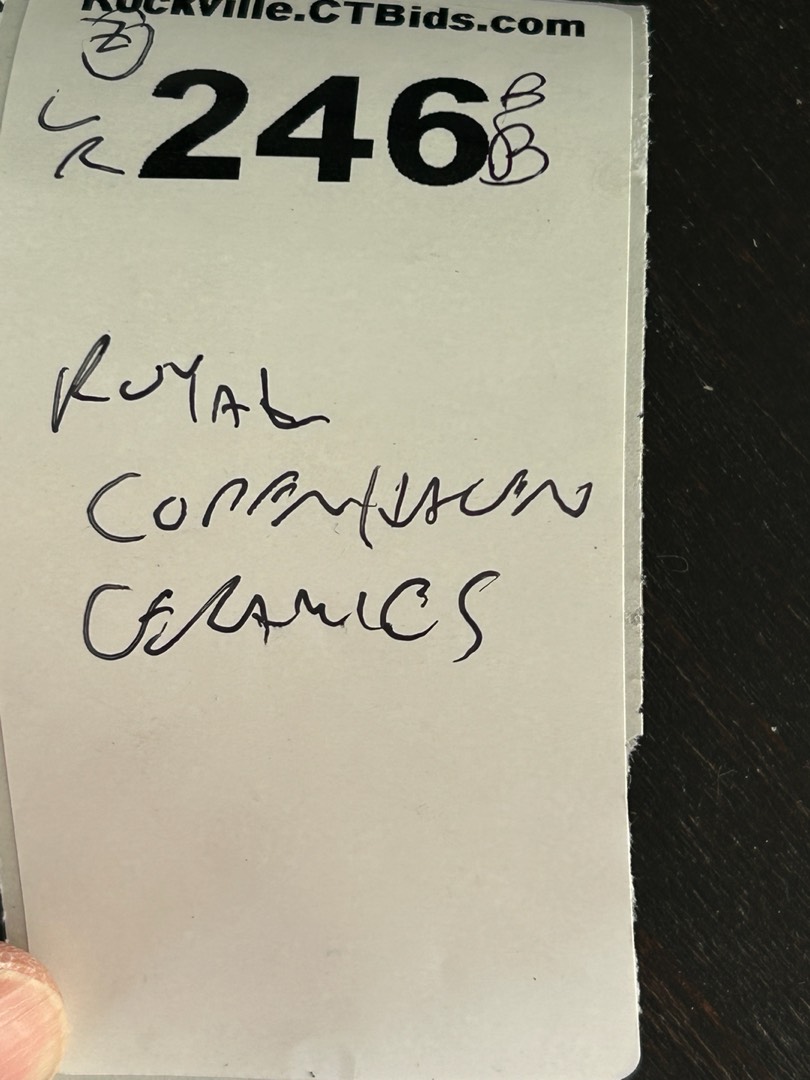 Rockville.CTBids.com
Z
LR 246 B
B
ROYAL
COPENHAGEN
CERAMICS